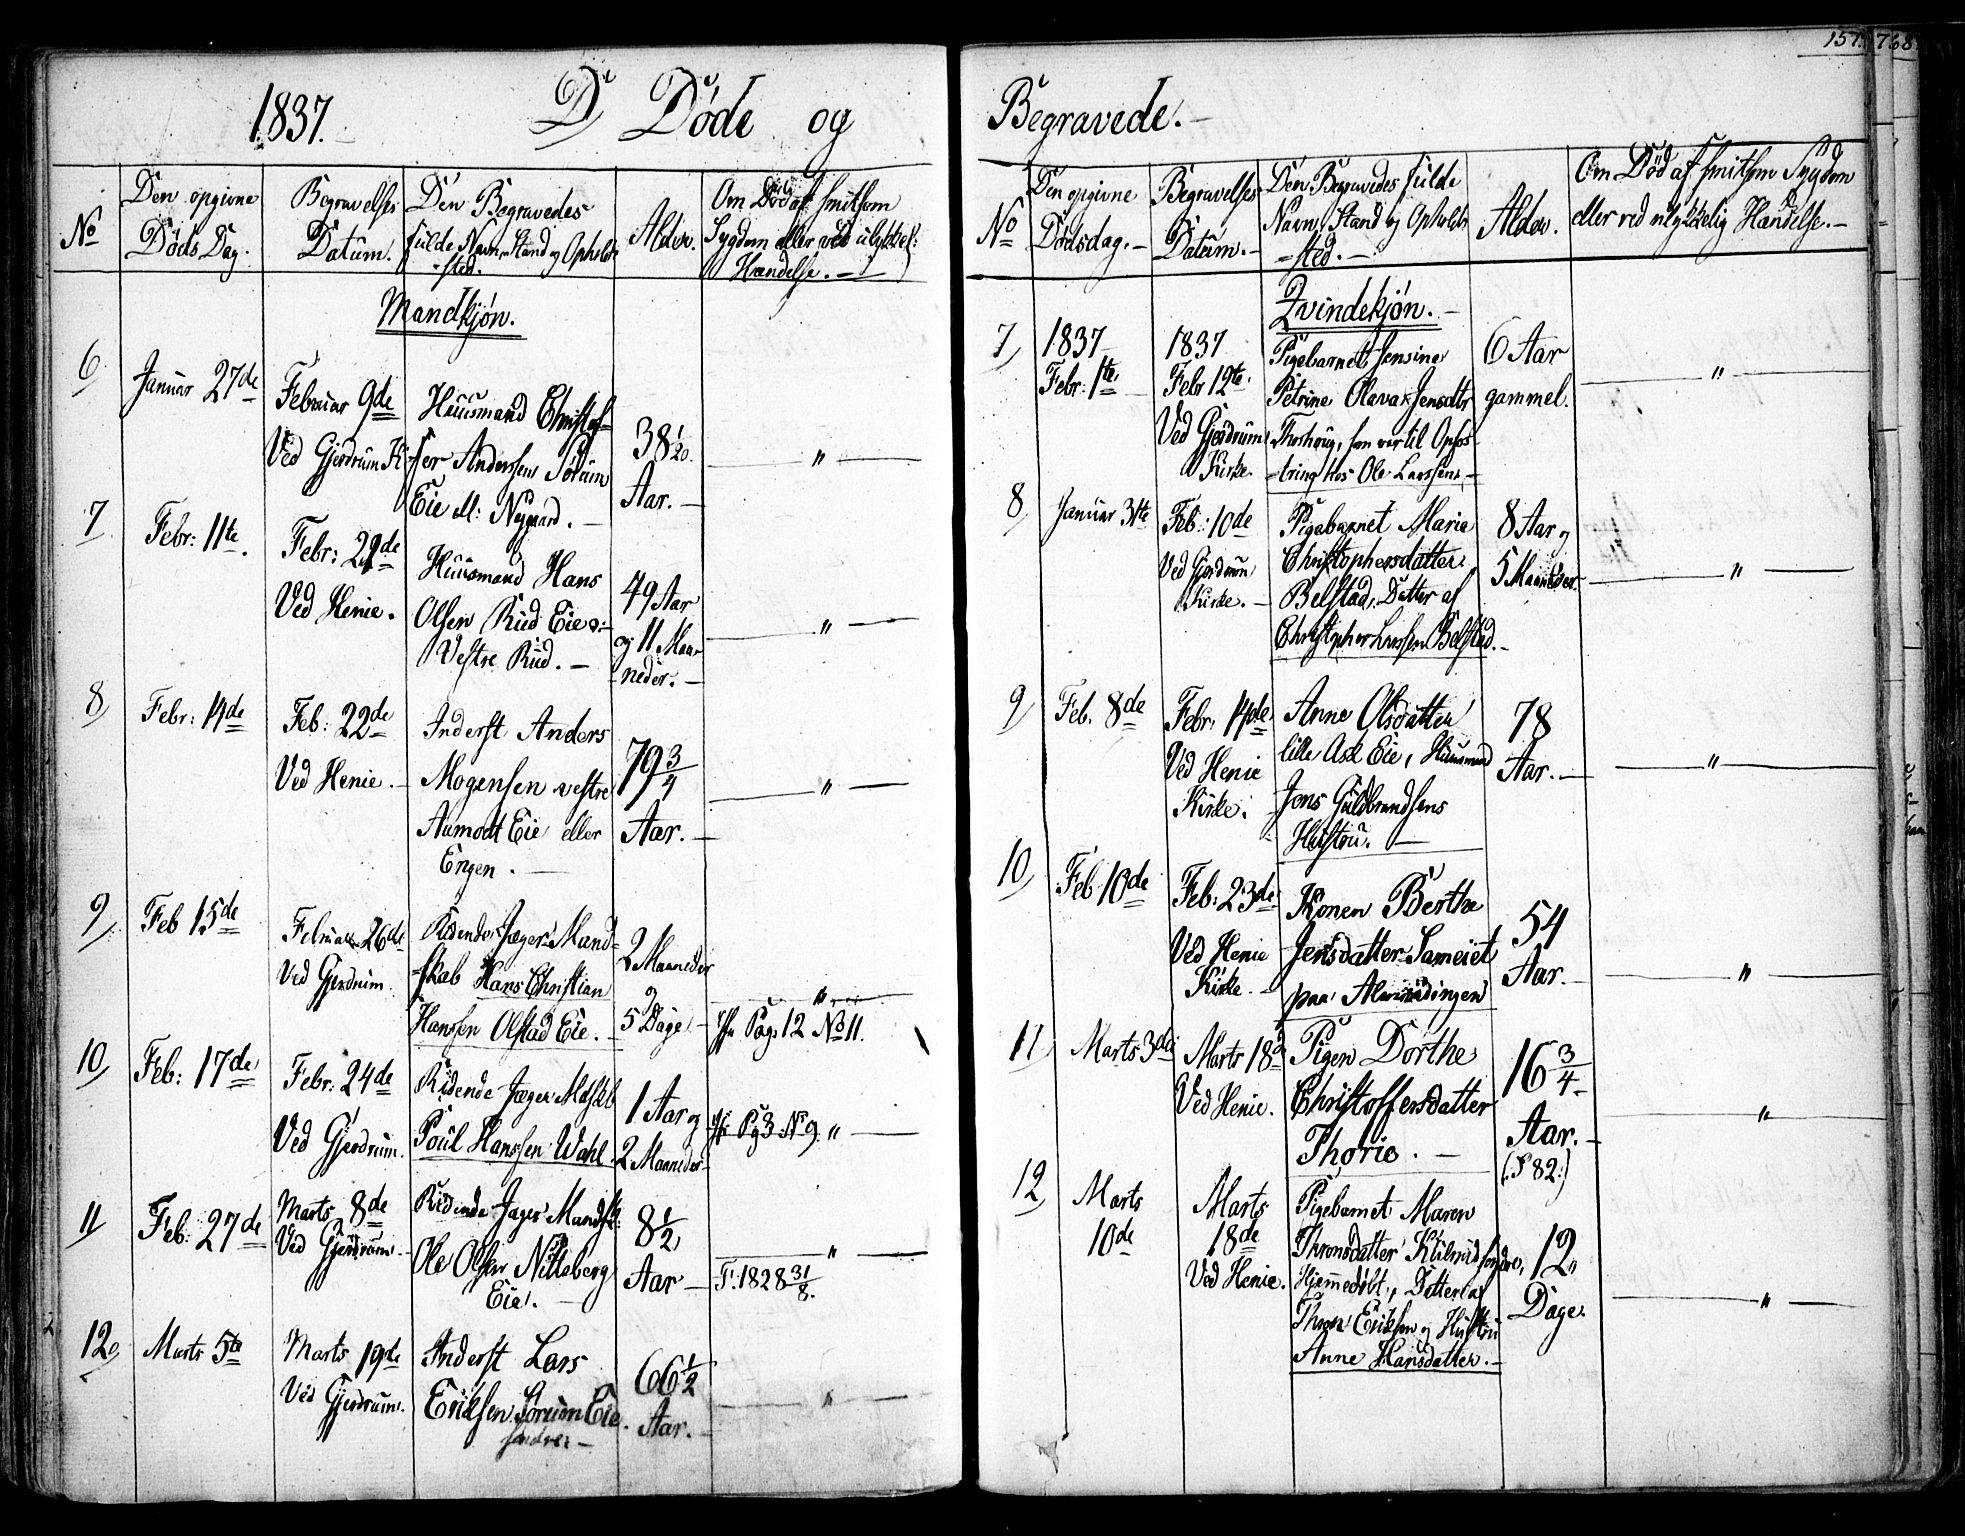 1837.
D Døde og
Begravede.
157. 768
No
Den opgivne
Døds Dag.
Begravelses
Datum.
Den Begravedes
fulde Navn, Stand og Opholds
=sted.
Alder.
Om Død af smitsom
Sygdom eller ved ulykkel:
Hændelse.
Mandkjøn.
6
Januar 27de
Februar 9de
Ved Gjerdrum K
Huusmand Christof=
=fer Andersen Sørum
Eie M: Nygaard.
38 1/20.
Aar.
"
7
Febr: 11te.
Febr: 22de
Ved Henie.
Huusmand Hans
Olsen Rud Eie
Vestre Rud.
49 Aar
og 11 Maa=
neder.
"
8
Febr: 14de
Feb: 22de
Ved Henie.
Inderst Anders
Mogensen vestre
Aamodt Eie eller
Engen.
79 3/4
Aar.
"
9
Feb 15de
Februar 26de
Ved Gjerdrum
Ridende Jæger Mand=
=skab Hans Christian
Hanssen Olstad Eie.
2 Maaneder
og
5 Dage
"
Pag: 12 No 11.
10
Feb: 17de
Febr: 24de
Ved Gjerdrum.
Ridende Jæger Mdskb
Poul Hanssen Wahl.
1 Aar og
2 Maaneder
Pg 3 No 9. "
11
Feb: 27de
Marts 8de
Ved Gjerdrum.
Ridende Jæger Mandsk:
Ole Olsen Nitteberg
Eie.
8 1/2
Aar
"
F: 1828 31/8.
12
Marts 5te
Marts 19de
Ved Gjerdrum.
Inderst Lars
Eriksen Sørum Eie.
søndre
66 1/2
Aar.
"
No
Den opgivne
Dødsdag.
Begravelses
Datum.
Den Begravedes fulde
Navn, Stand og Opholds
=sted.
Alder.
Om Død af smitsom Sygdom
eller ved ulykkelig Hændelse.
Qvindekjøn.
7
1837
Febr: 1te
1837
Febr 12te
Ved Gjerdrum
Kirke
Pigebarnet Jensine
Petrine Olava Jensdtr
Thorshoug, som var til Opfos=
=tring hos Ole Larssen
6 Aar
gammel.
"
8
Januar 31te
Feb: 10de
Ved Gjerdrum
Kirke.
Pigebarnet Maria
Christophersdatter
Belstad, Datter af
Christopher Larssen Belstad.
8 Aar og
5 Maaneder
"
9
Feb. 8de
Febr: 14de
Ved Henie
Kirke.
Anne Olsdatter
lille Ask Eie, Huusmand
Jons Guldbrandsens
Hustru.
78
Aar.
"
10
Feb 10de
Feb: 23de
Ved Henie
Kirke.
Konen Berthe
Jensdatter Sameiet
paa Almindingen
54
Aar.
"
11
Marts 3de
Marts 18de
Ved Henie.
Pigen Dorthe
Christoffersdatter
Thorie.
16 3/4
Aar.
(S 82.)
"
12
Marts
10de
Marts
18de
Ved Henie.
Pigebarnet Maren
Thronsdatter Kulsrud
Hjemmedøbt, Datter af
Thron Eriksen og Hustru
Anne Hansdatter.
12
Dage.
"